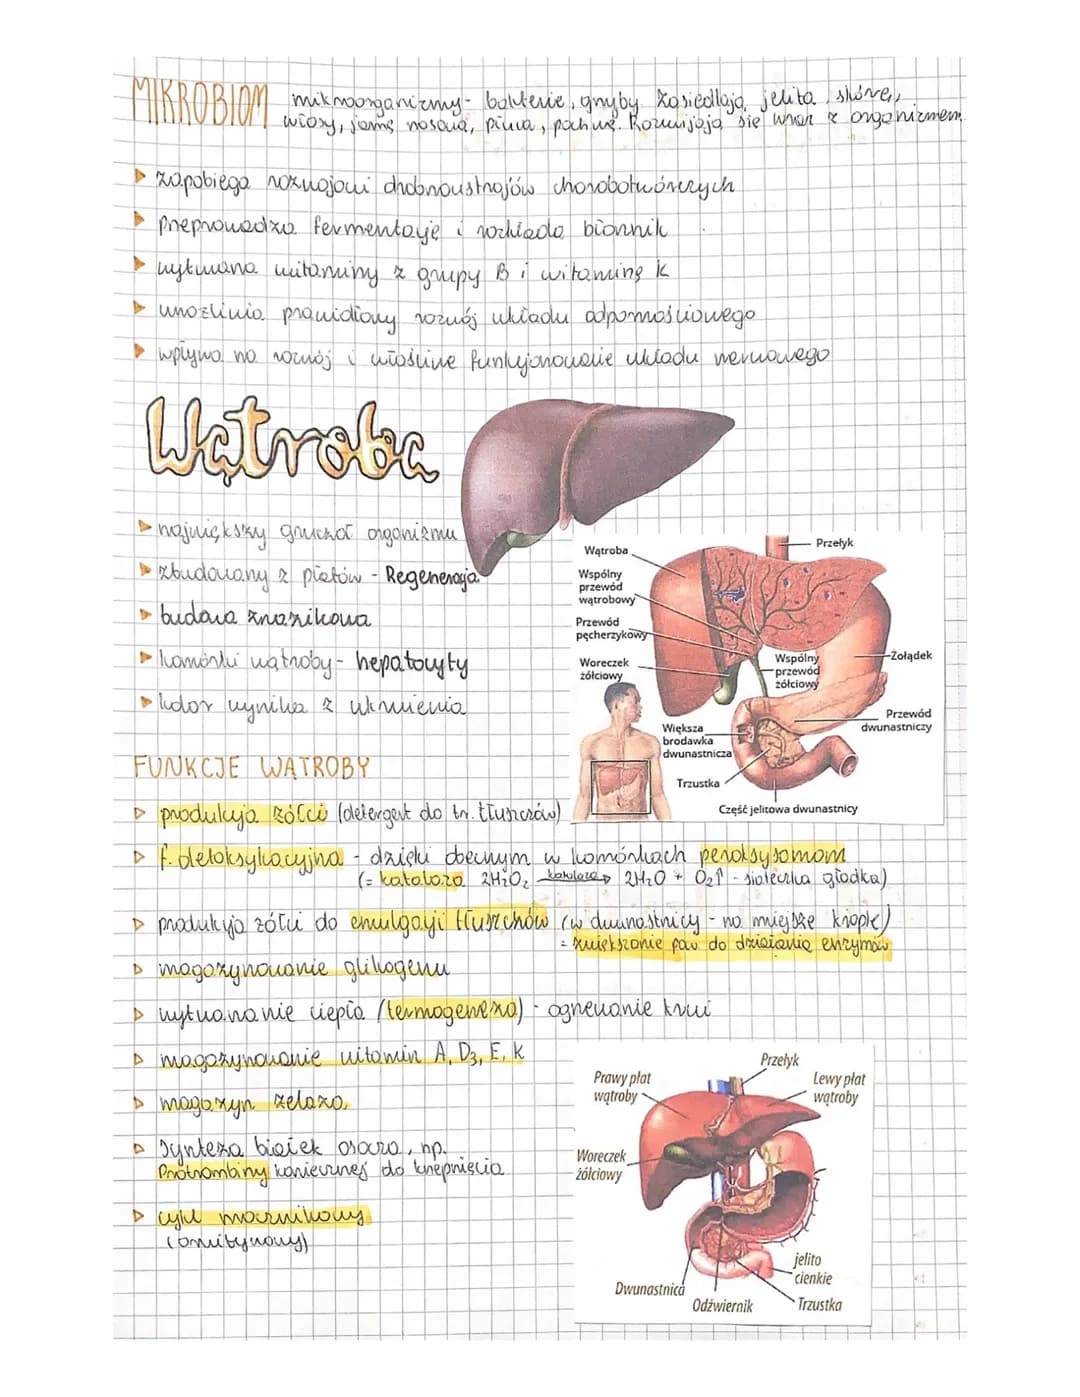 MIKROBIOM
mikroorganizmy - bakterie, grzyby. Zasiedlają jelita, skórę,
włosy, jamę nosową, płuca, pochwę. Rozwijają się wraz z organizmem
zapobiega rozwojowi drobnoustrojów chorobotwórczych
przeprowadza fermentację i rozkłada błonnik
wytwarza witaminy z grupy B i witaminę K
umożliwia prawidłowy rozwój układu odpornościowego
wpływa na rozwój i właściwe funkcjonowanie układu nerwowego
Wątroba
największy gruczoł organizmu
zbudowany z płatów - Regeneracja
budowa zrazikowa
komórki wątroby - hepatocyty
kolor wynika z ukrwienia
Wątroba
Przełyk
Wspólny
przewód
wątrobowy
Przewód
pęcherzykowy
Woreczek
żółciowy
Wspólny
przewód
żółciowy
Żołądek
Przewód
dwunastniczy
Większa
brodawka
dwunastnicza
Trzustka
Część jelitowa dwunastnicy
FUNKCJE WĄTROBY
produkcja żółci (detergent do tr. tłuszczów)
f. detoksykacyjna - dzięki obecnym w komórkach peroksysomom
(= kataloza 2H2O2 kataloza → 2H2O + O2↑ - siateczka gładka)
produkcja żółci do emulgacji tłuszczów (w dwunastnicy - na mniejsze krople)
= zwiększanie pow do działania enzymów
magazynowanie glikogenu
wytwarzanie ciepła (termogeneza) - ogrzewanie krwi
magazynowanie witamin A, D3, E, K
magazyn żelaza
Synteza białek osocza, np.
Protrombiny koniecznej do krzepnięcia
cykl mocznikowy
(ornitynowy)
Przełyk
Prawy płat
wątroby
Lewy płat
wątroby
Woreczek
żółciowy
jelito
cienkie
Dwunastnica
Odźwiernik
Trzustka